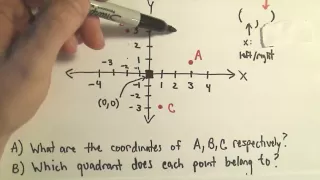 Y
( , )
x:
left/right
3
2
1
A
-3
-2
-1
X
-4
1 2 3 4
(0,0)
-1
-2
-3
C
A) What are the coordinates of A, B, C respectively?
B) Which quadrant does each point belong to?